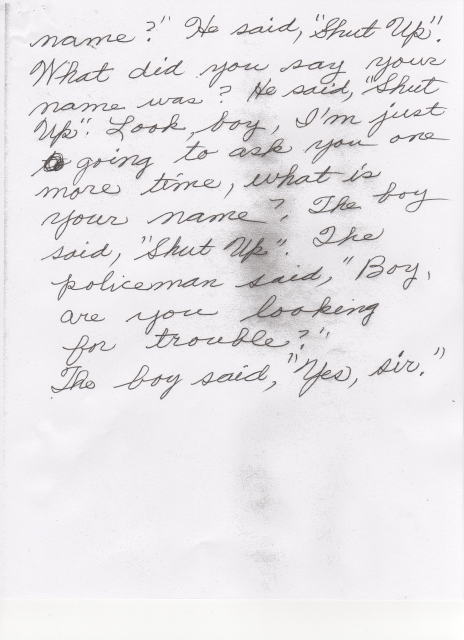 name?" He said, "Shut Up".
What did you say your
name was? He said, "Shut
Up". Look, boy, I'm just
going to ask you one
more time, what is
your name? The boy
said, "Shut Up". The
policeman said, "Boy,
are you looking
for trouble?"
The boy said, "Yes, sir."